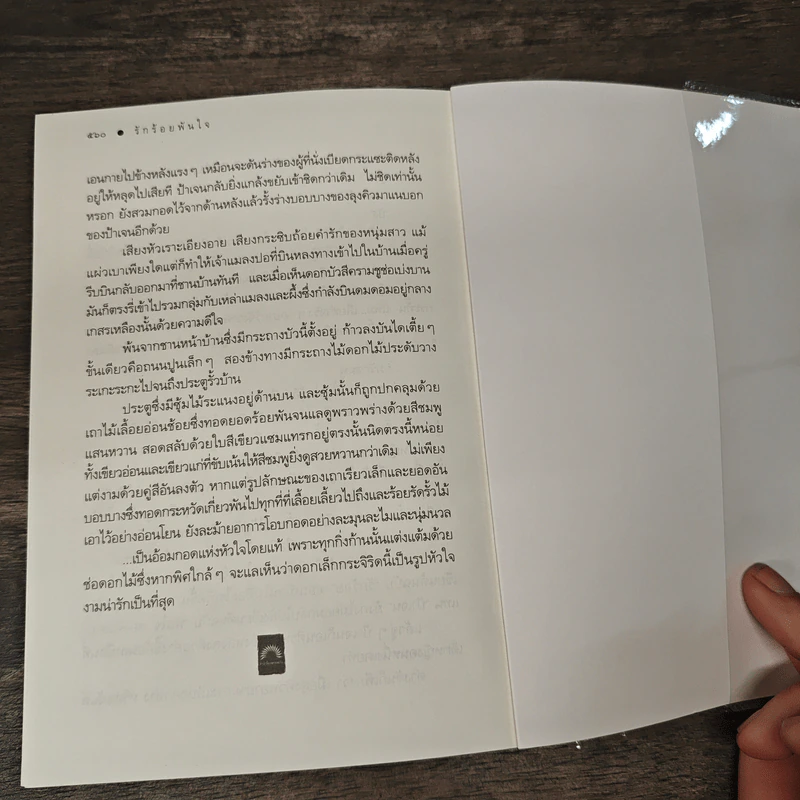 ๕๖๐ ● รักร้อยพันใจ
เอนกายไปข้างหลังแรงๆ เหมือนจะดันร่างของผู้ที่นั่งเบียดกระแซะติดหลัง
อยู่ให้หลุดไปเสียที ป้าเจนกลับยิ่งแกล้งขยับเข้าชิดกว่าเดิม ไม่ชิดเท่านั้น
หรอก ยังสวมกอดไว้จากด้านหลังแล้วรั้งร่างบอบบางของลุงคิวมาแนบอก
ของป้าเจนอีกด้วย
เสียงหัวเราะเอียงอาย เสียงกระซิบถ้อยคำรักของหนุ่มสาว แม้
แผ่วเบาเพียงใดแต่ก็ทำให้เจ้าแมลงปอที่บินหลงทางเข้าไปในบ้านเมื่อครู่
รีบบินกลับออกมาที่ชานบ้านทันที และเมื่อเห็นดอกบัวสีครามชูช่อเบ่งบาน
มันก็ตรงรี่เข้าไปรวมกลุ่มกับเหล่าแมลงและผึ้งซึ่งกำลังบินดมดอมอยู่กลาง
เกสรเหลืองนั้นด้วยความดีใจ
พ้นจากชานหน้าบ้านซึ่งมีกระถางบัวนี้ตั้งอยู่ ก้าวลงบันไดเตี้ยๆ
ขั้นเดียวคือถนนปูนเล็กๆ สองข้างทางมีกระถางไม้ดอกไม้ประดับวาง
ระเกะระกะไปจนถึงประตูรั้วบ้าน
ประตูซึ่งมีซุ้มไม้ระแนงอยู่ด้านบน และซุ้มนั้นก็ถูกปกคลุมด้วย
เถาไม้เลื้อยอ่อนช้อยซึ่งทอดยอดร้อยพันจนแลดูพราวพร่างด้วยสีชมพู
แสนหวาน สอดสลับด้วยใบสีเขียวแซมแทรกอยู่ตรงนั้นนิดตรงนี้หน่อย
ทั้งเขียวอ่อนและเขียวแก่ที่ขับเน้นให้สีชมพูยิ่งดูสวยหวานกว่าเดิม ไม่เพียง
แต่งามด้วยคู่สีอันลงตัว หากแต่รูปลักษณะของเถาเรียวเล็กและยอดอัน
บอบบางซึ่งทอดกระหวัดเกี่ยวพันไปทุกที่ที่เลื้อยเลี้ยวไปถึงและร้อยรัดรั้วไม้
เอาไว้อย่างอ่อนโยน ยังละม้ายอาการโอบกอดอย่างละมุนละไมและนุ่มนวล
...เป็นอ้อมกอดแห่งหัวใจโดยแท้ เพราะทุกกิ่งก้านนั้นแต่งแต้มด้วย
ช่อดอกไม้ซึ่งหากพิศใกล้ๆ จะแลเห็นว่าดอกเล็กกระจิริดนี้เป็นรูปหัวใจ
งามน่ารักเป็นที่สุด